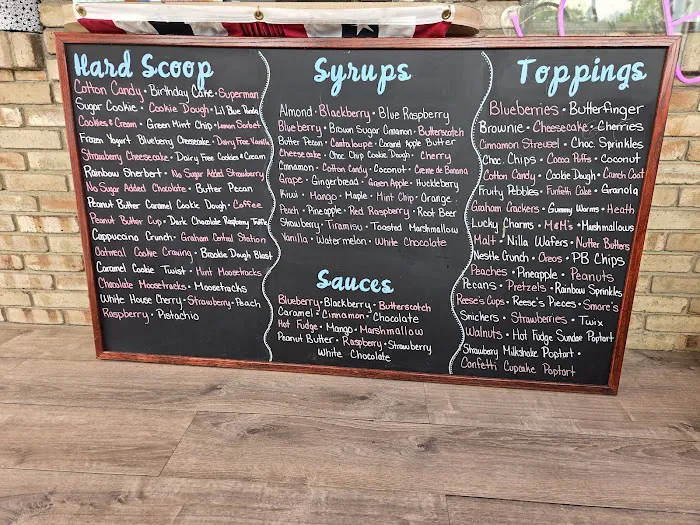 Hard Scoop
Cotton Candy • Birthday Cake • Superman
Sugar Cookie • Cookie Dough • Lil Blue Panda
Cookies & Cream • Green Mint Chip • Lemon Sorbet
Frozen Yogurt Blueberry Cheesecake • Dairy Free Vanilla
Strawberry Cheesecake • Dairy Free Cookies & Cream
Rainbow Sherbert • No Sugar Added Strawberry
No Sugar Added Chocolate • Butter Pecan
Peanut Butter Caramel Cookie Dough • Coffee
Peanut Butter Cup • Dark Chocolate Raspberry Truffle
Cappuccino Crunch • Graham Central Station
Oatmeal Cookie Craving • Brookie Dough Blast
Caramel Cookie Twist • Mint Moosetracks
Chocolate Moosetracks • Moosetracks
White House Cherry • Strawberry • Peach
Raspberry • Pistachio
Syrups
Almond • Blackberry • Blue Raspberry
Blueberry • Brown Sugar Cinnamon • Butterscotch
Butter Pecan • Cantaloupe • Caramel Apple Butter
Cheesecake • Choc Chip Cookie Dough • Cherry
Cinnamon • Cotton Candy • Coconut • Creme de Banana
Grape • Gingerbread • Green Apple • Huckleberry
Kiwi • Mango • Maple • Mint Chip • Orange
Peach • Pineapple • Red Raspberry • Root Beer
Strawberry • Tiramisu • Toasted Marshmallow
Vanilla • Watermelon • White Chocolate
Sauces
Blueberry • Blackberry • Butterscotch
Caramel • Cinnamon • Chocolate
Hot Fudge • Mango • Marshmallow
Peanut Butter • Raspberry • Strawberry
White Chocolate
Toppings
Blueberries • Butterfinger
Brownie • Cheesecake • Cherries
Cinnamon Streusel • Choc Sprinkles
Choc Chips • Cocoa Puffs • Coconut
Cotton Candy • Cookie Dough • Crunch Coat
Fruity Pebbles • Funfetti Cake • Granola
Graham Crackers • Gummy Worms • Heath
Lucky Charms • M&M's • Marshmallows
Malt • Nilla Wafers • Nutter Butters
Nestle Crunch • Oreos • PB Chips
Peaches • Pineapple • Peanuts
Pecans • Pretzels • Rainbow Sprinkles
Reese's Cups • Reese's Pieces • Smore's
Snickers • Strawberries • Twix
Walnuts • Hot Fudge Sundae Poptart
Strawberry Milkshake Poptart •
Confetti Cupcake Poptart